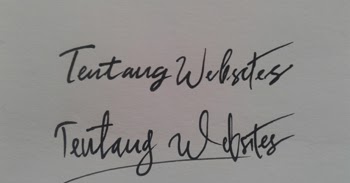 Tentang Websites
Tentang Websites